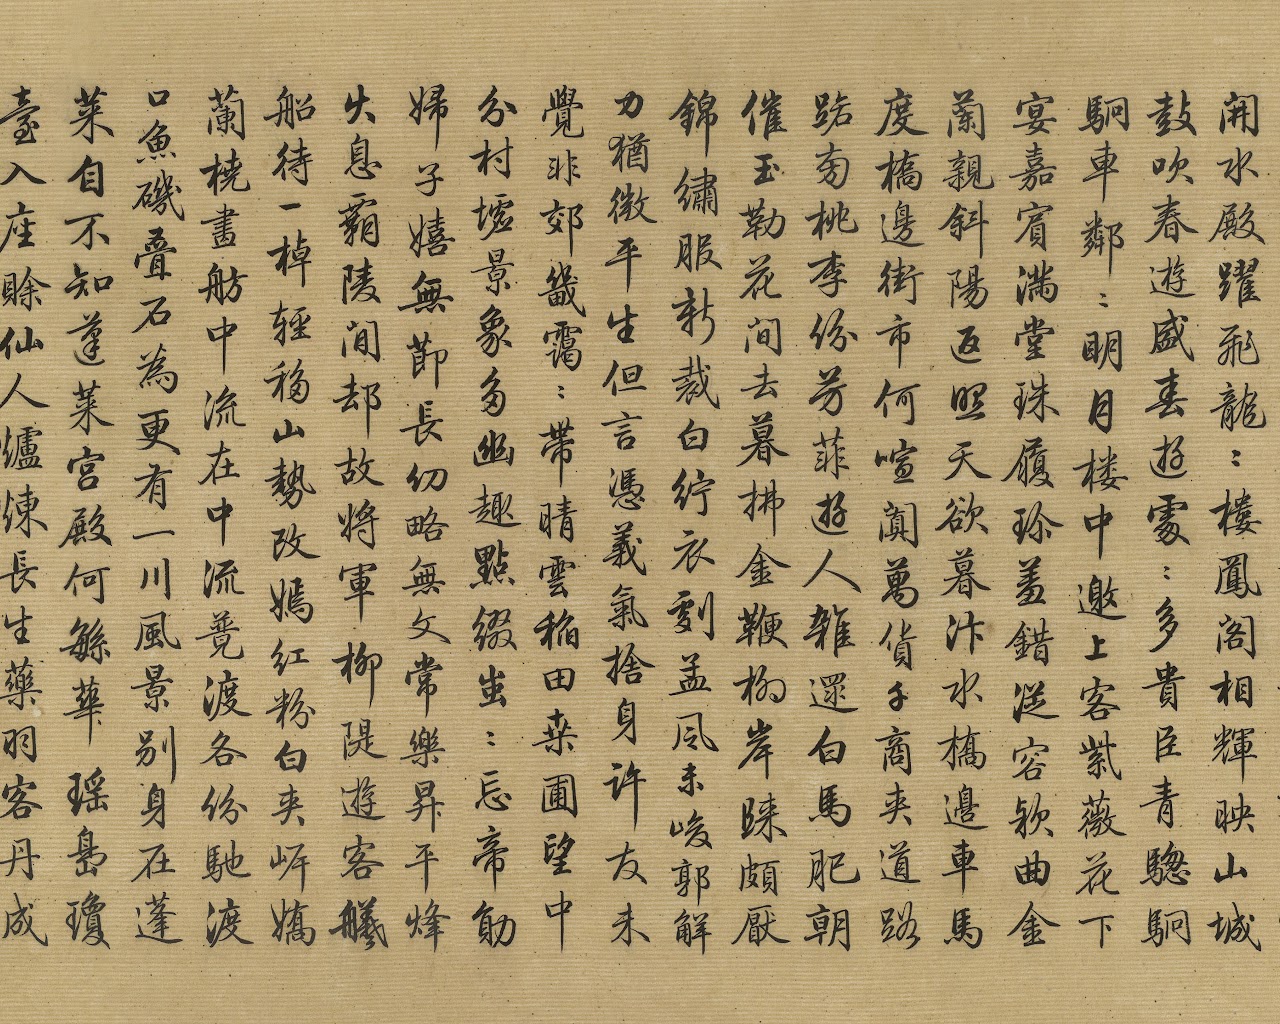 開水殿躍飛龍〻樓鳳閣相輝映山城
鼓吹春遊盛春遊處〻多貴臣青驄駟
駟車鄰〻明月樓中邀上客紫薇花下
宴嘉賓滿堂珠履珍羞錯從容欵曲金
蘭親斜陽返照天欲暮汴水橋邊車馬
度橋邊街市何喧闐萬貨千商夾道路
路旁桃李份芳菲遊人雜還白馬肥朝
催玉勒花間去暮拂金鞭柳岸歸頗厭
錦繡服新裁白紵衣劇孟風未峻郭解
力猶微平生但言憑義氣捨身許友未
覺非郊畿靄〻帶晴雲稻田桑圃望中
分村墟景象多幽趣點綴蚩〻忘帝勛
婦子嬉無節長幼略無文常樂昇平烽
火息霸陵間却故將軍柳隄遊客艤
船待一棹輕移山勢改嫣紅粉白夾岸嬌
蘭橈畫舫中流在中流競渡各份馳渡
口魚磯疊石為更有一川風景別身在蓬
萊自不知蓬萊宮殿何緐華瑶島瓊
臺入座賒仙人爐煉長生藥羽客丹成